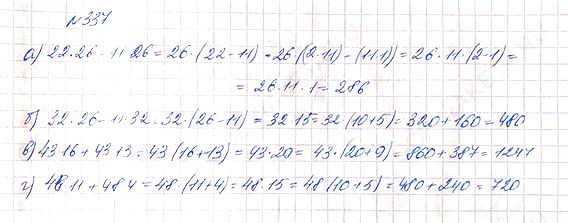 №337
а) 22·26 - 11·26 = 26·(22-11) = 26(2·11) - (11·1)) = 26·11·(2-1) =
= 26·11·1 = 286
б) 32·26 - 11·32 = 32·(26-11) = 32·15 = 32(10+5) = 320+160 = 480
в) 43·16 + 43·13 = 43(16+13) = 43·29 = 43·(20+9) = 860+387 = 1247
г) 48·11 + 48·4 = 48·(11+4) = 48·15 = 48(10+5) = 480+240 = 720